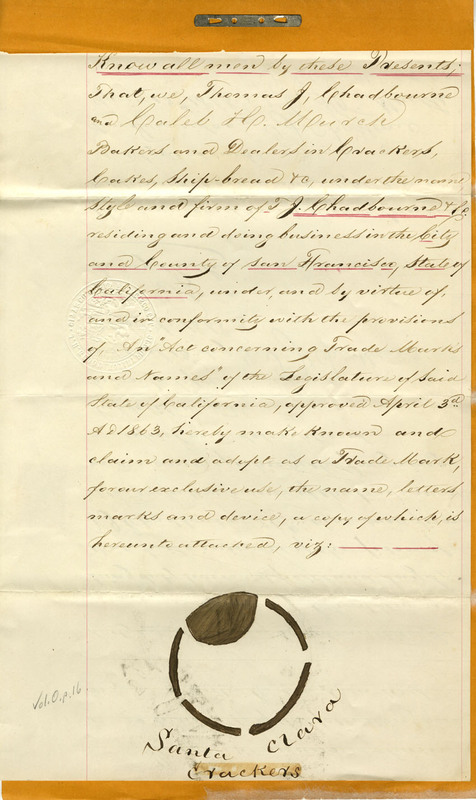 Know all men by these Presents:
That, we, Thomas J, Chadbourne
and Caleb H. Murch
Bakers and Dealers in Crackers,
Cakes, Ship-bread &c, under the name
style and firm of T J. Chadbourne & Co.
residing and doing business in the City
and County of San Francisco, State of
California, under, and by virtue of,
and in conformity with the provisions
of, An "Act concerning Trade Marks
and Names" of the Legislature of Said
State of California, approved April 3rd
AD 1863, hereby make known and
claim and adopt as a Trade Mark,
for our exclusive use, the name, letters
marks and device, a copy of which, is
hereunto attached, viz:
Vol. O, p. 16
Santa Clara
Crackers